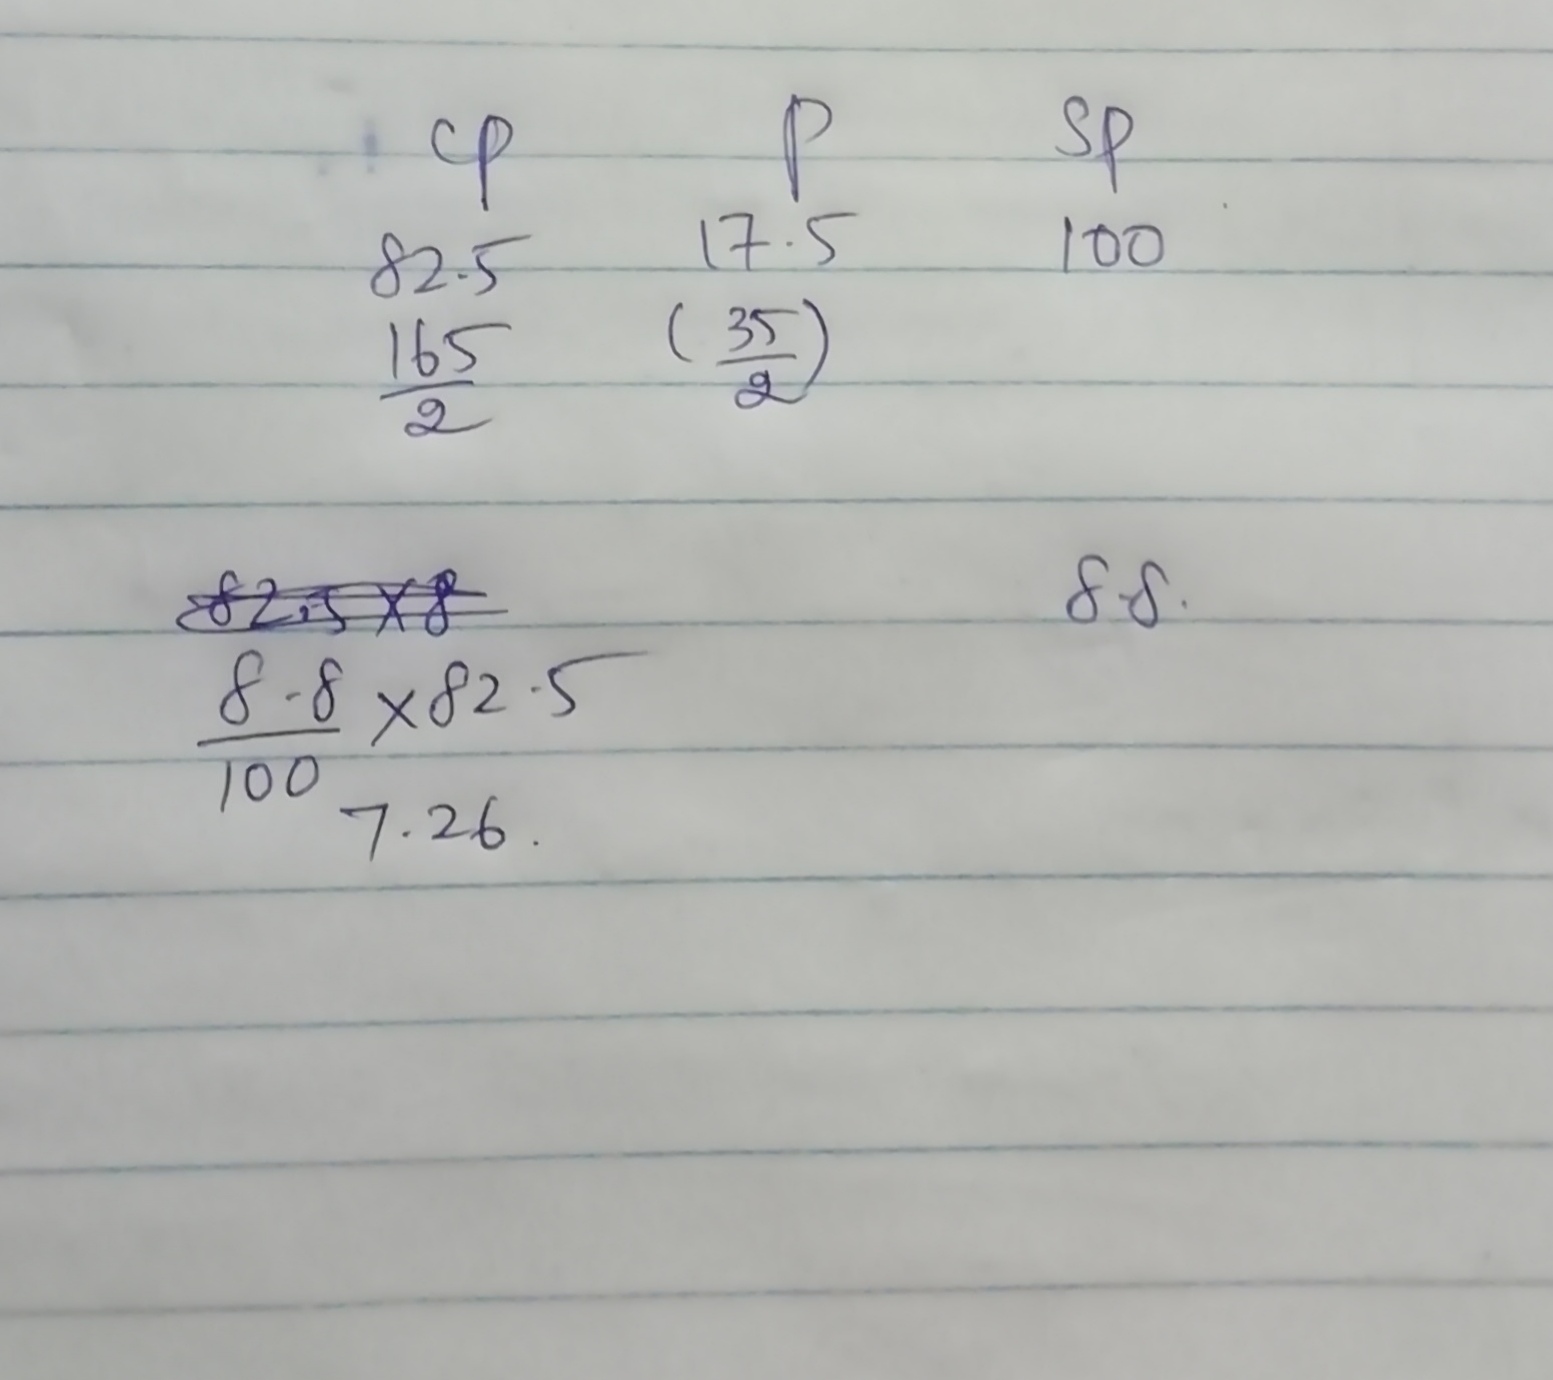 CP P SP
82.5 17.5 100
165/2 (35/2)
82.5 × 8 8.8.
8.8/100 × 82.5
7.26.